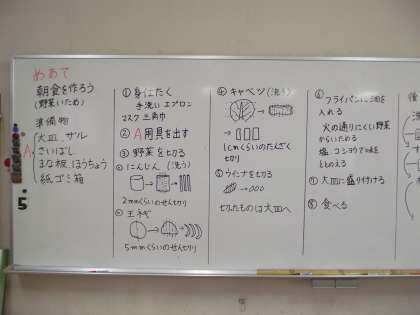 めあて
朝食を作ろう
(野菜いため)
準備物
大皿、ザル
さいばし
A
まな板、ほうちょう
紙ゴミ箱
5
① 身じたく
手洗い エプロン
マスク 三角巾
② A用具を出す
③ 野菜を切る
にんじん (洗う)
2mmくらいのせん切り
玉ネギ
5mmくらいのせん切り
キャベツ (洗う)
1cmくらいのたんざく
切り
⑤ ウインナを切る
切ったものは大皿へ
⑥ フライパンに油を
入れる
火の通りにくい野菜
からいためる
塩、コショウで味を
ととのえる
⑦ 大皿に盛り付ける
⑧ 食べる
後